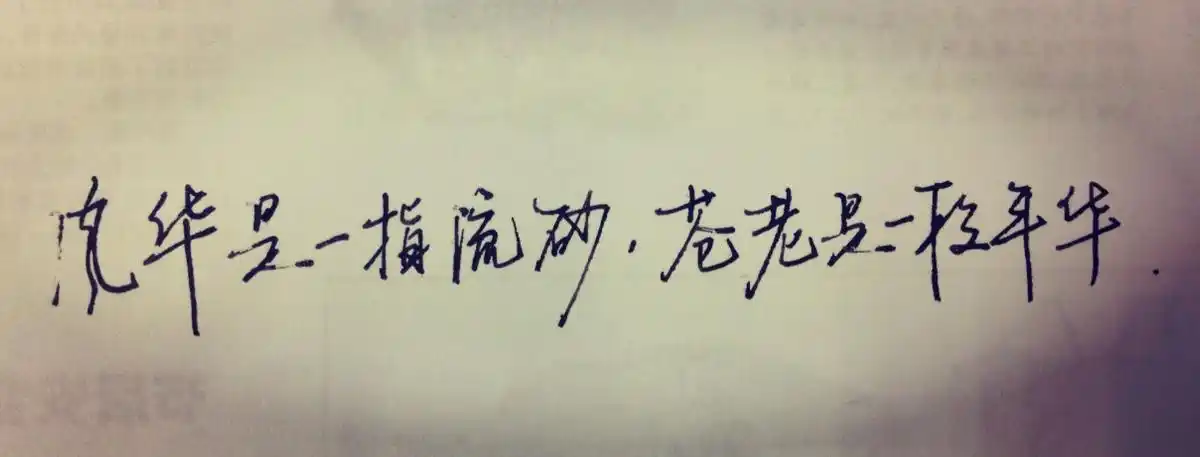 风华是一指流砂.苍老是一段年华.